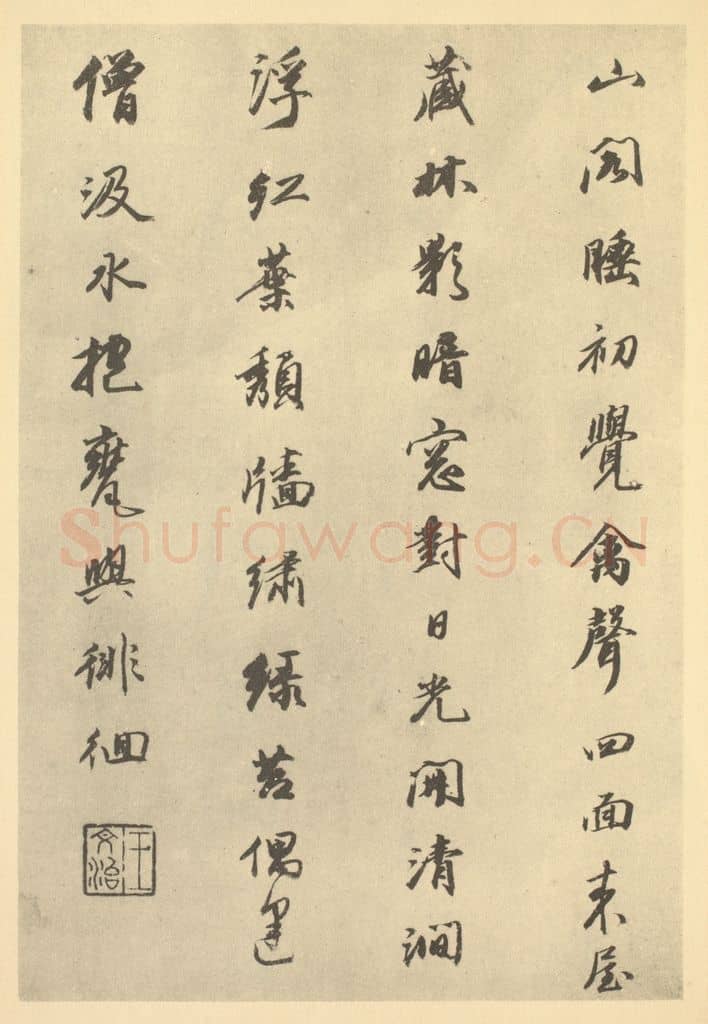 山阁睡初覺禽聲四面来屋
藏林影暗窓對日光開清澗
浮红葉頽牆绣绿苔偶逢
僧汲水抱甕與徘徊
王文治
Shufawang.CN